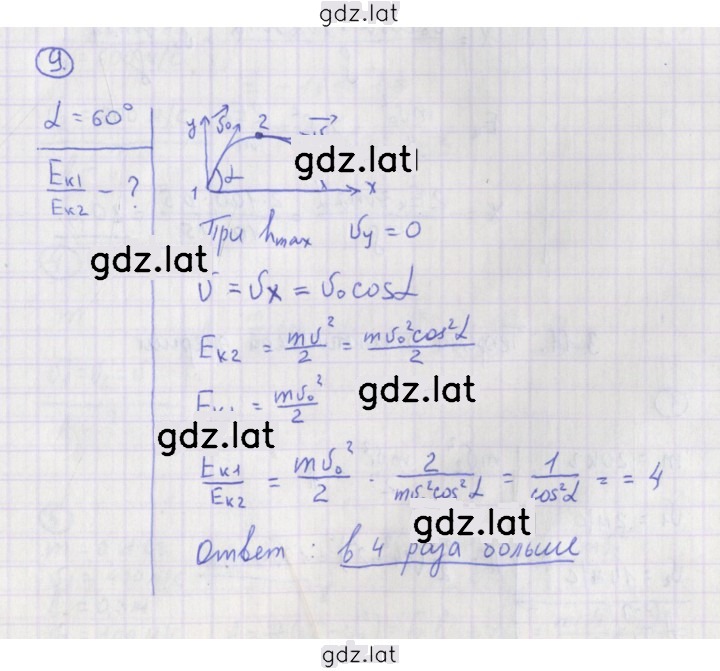 gdz.lat
9.
α = 60°
Eк1/Eк2 - ?
y v₀ 2
gdz.lat
1 α x
При hmax vy = 0
gdz.lat
v = vx = v₀cosα
Eк2 = mv²/2 = mv₀²cos²α/2
gdz.lat
= mv₀²/2
gdz.lat
Eк1/Eк2 = mv₀²/2 · 2/mv₀²cos²α = 1/cos²α = = 4
gdz.lat
Ответ: в 4 раза больше
gdz.lat